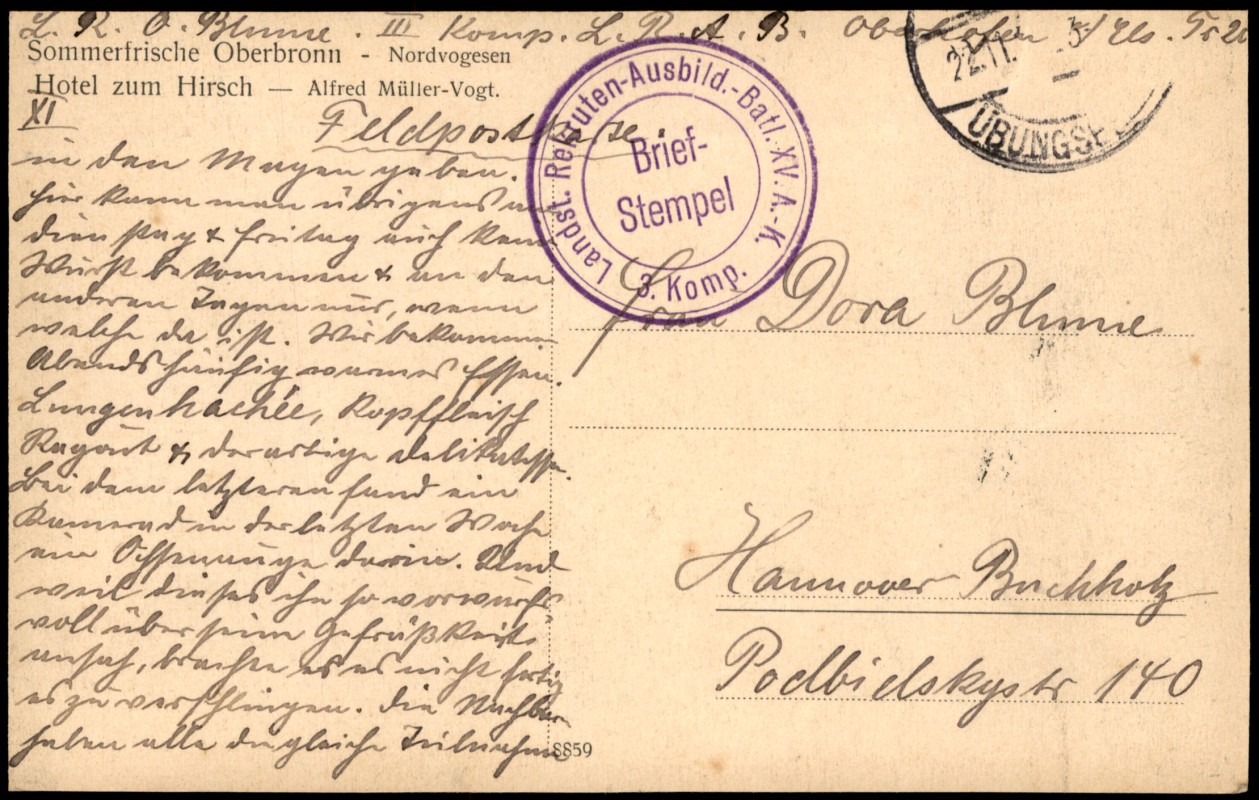 L. R. O. Blume. III Komp. L. R. A. B. Oberhofen
Sommerfrische Oberbronn - Nordvogesen
Hotel zum Hirsch — Alfred Müller-Vogt.
XI
Feldpostkarte.
in den Magen geben.
Hier kann man übrigens
Dienstag & Freitag auch kein
Wurst bekommen & an den
anderen Tagen nur, wenn
welche da ist. Wir bekommen
Abends häufig warmes Essen.
Lungenhachée, Kopffleisch
Ragout & derartige Delikatessen.
Bei dem letzteren fand ein
Kamerad in der letzten Woche
ein Ochsenauge darin. Und
weil dieses ihn so vorwurfs
voll über seine Gefräßigkeit
ansah, brachte er es nicht fertig
es zu verschlingen. Die Nachbarn
haben alle die gleiche Teilnahme
Landst. Rekruten-Ausbild.-Batl. XV. A.-K.
3. Komp.
Brief-
Stempel
22.11.
ÜBUNGSP
Frau Dora Blume
Hannover Buchholz
Podbielskystr 140
8859